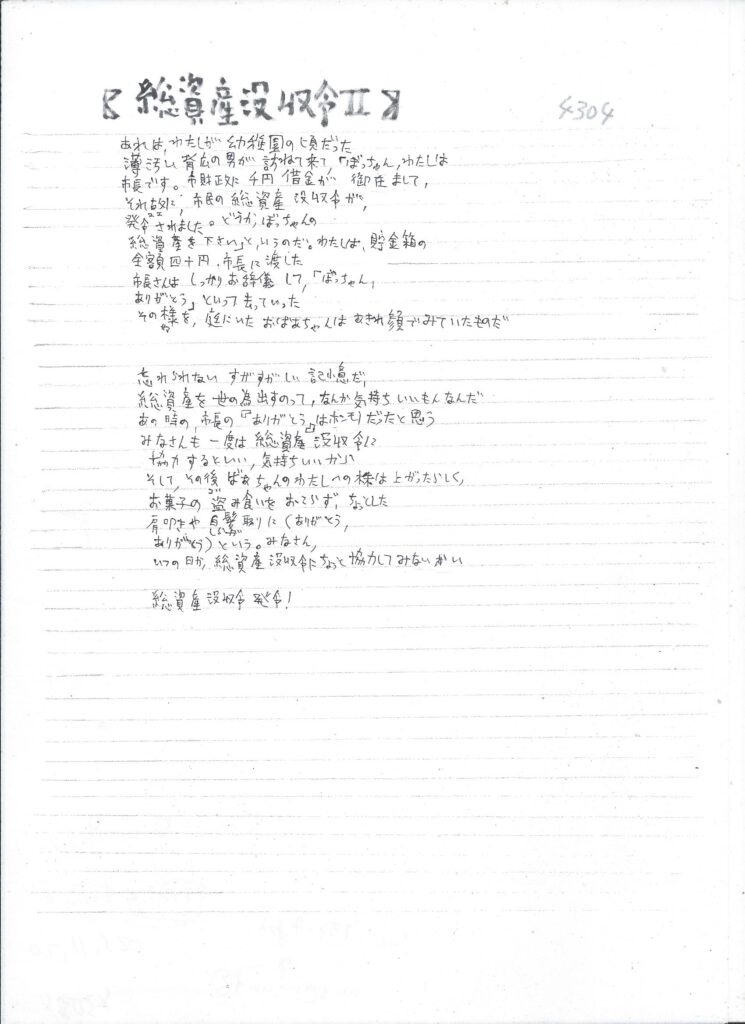 【総資産没収令Ⅱ】
4304
あれは、わたしが幼稚園の頃だった
薄汚い背広の男が訪ねて来て、「ぼっちゃん、わたしは
市長です。市財政に千円借金が御座まして、
それ故に、市民の総資産没収令が、
発令されました。どうかぼっちゃんの
総資産を下さい」と、いうのだ。わたしは、貯金箱の
全額四十円、市長に渡した
市長さんは しっかりお辞儀して、「ぼっちゃん、
ありがとう」といって去っていった
その様を、庭にいたおばあちゃんはあきれ顔でみていたものだ
忘れられない すがすがしい記憶だ、
総資産を世の為出すのって、なんか気持ちいいもんなんだ
あの時の、市長の「ありがとう」はホンモノだったと思う
みなさんも一度は総資産没収令に
協力するといい、気持ちいいから
そして、その後ばあちゃんのわたしへの株は上がったらしく、
お菓子の盗み食いをおこらず、ちょっとした
肩叩きや白髪取りに(ありがとう、
しらが
ありがとう)という。みなさん、
いつの日か、総資産没収令にちょっと協力してみないかい
総資産没収令発令!